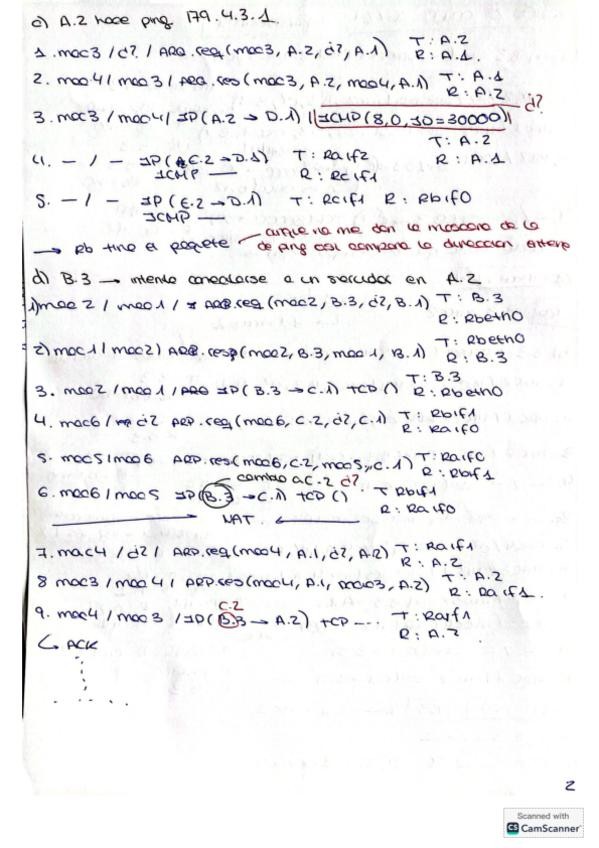 c) A.2 hace ping 179.4.3.1.
1. mac3 / d? / ARQ.req(mac3, A.2, d?, A.1) T: A.2
R: A.1.
2. mac4 / mac3 / ARQ.res(mac3, A.2, mac4, A.1) T: A.1
R: A.2
3. mac3 / mac4 / IP(A.2 → D.1) | ICMP(8,0,ID=30000) | d?
T: A.2
R: A.1
4. — / — IP(C.2 → D.1) T: Raif2
ICMP — R: Rcif1
5. — / — IP(C.2 → D.1) T: Rcif1 R: Rbif0
ICMP —
aunque no me den la mascara de la
→ Rb tira el paquete de ping asi compara la direccion entera
d) B.3 → intenta conectarse a un servidor en A.2
1) mac2 / mac1 / ARP.req(mac2, B.3, d?, B.1) T: B.3
R: Rbeth0
2) mac1 / mac2) ARP.resp(mac2, B.3, mac1, B.1) T: Rbeth0
R: B.3
3. mac2 / mac1 / IP(B.3 → C.1) TCP() T: B.3
R: Rbeth0
4. mac6 / d? ARP.req(mac6, C.2, d?, C.1) T: Rbif1
R: Raif0
5. mac5 / mac6 ARP.res(mac6, C.2, mac5, C.1) T: Raif0
R: Rbif1
cambio a C.2 d?
6. mac6 / mac5 IP(B.3 → C.1) TCP() T Rbif1
R: Raif0
NAT.
7. mac4 / d? / ARP.req(mac4, A.1, d?, A.2) T: Raif1
R: A.2
8 mac3 / mac4 / ARP.res(mac4, A.1, mac3, A.2) T: A.2
R: Raif1.
C.2
9. mac4 / mac3 / IP(B.3 → A.2) TCP --- T: Raif1
R: A.2
↳ ACK
2
Scanned with
CS CamScanner